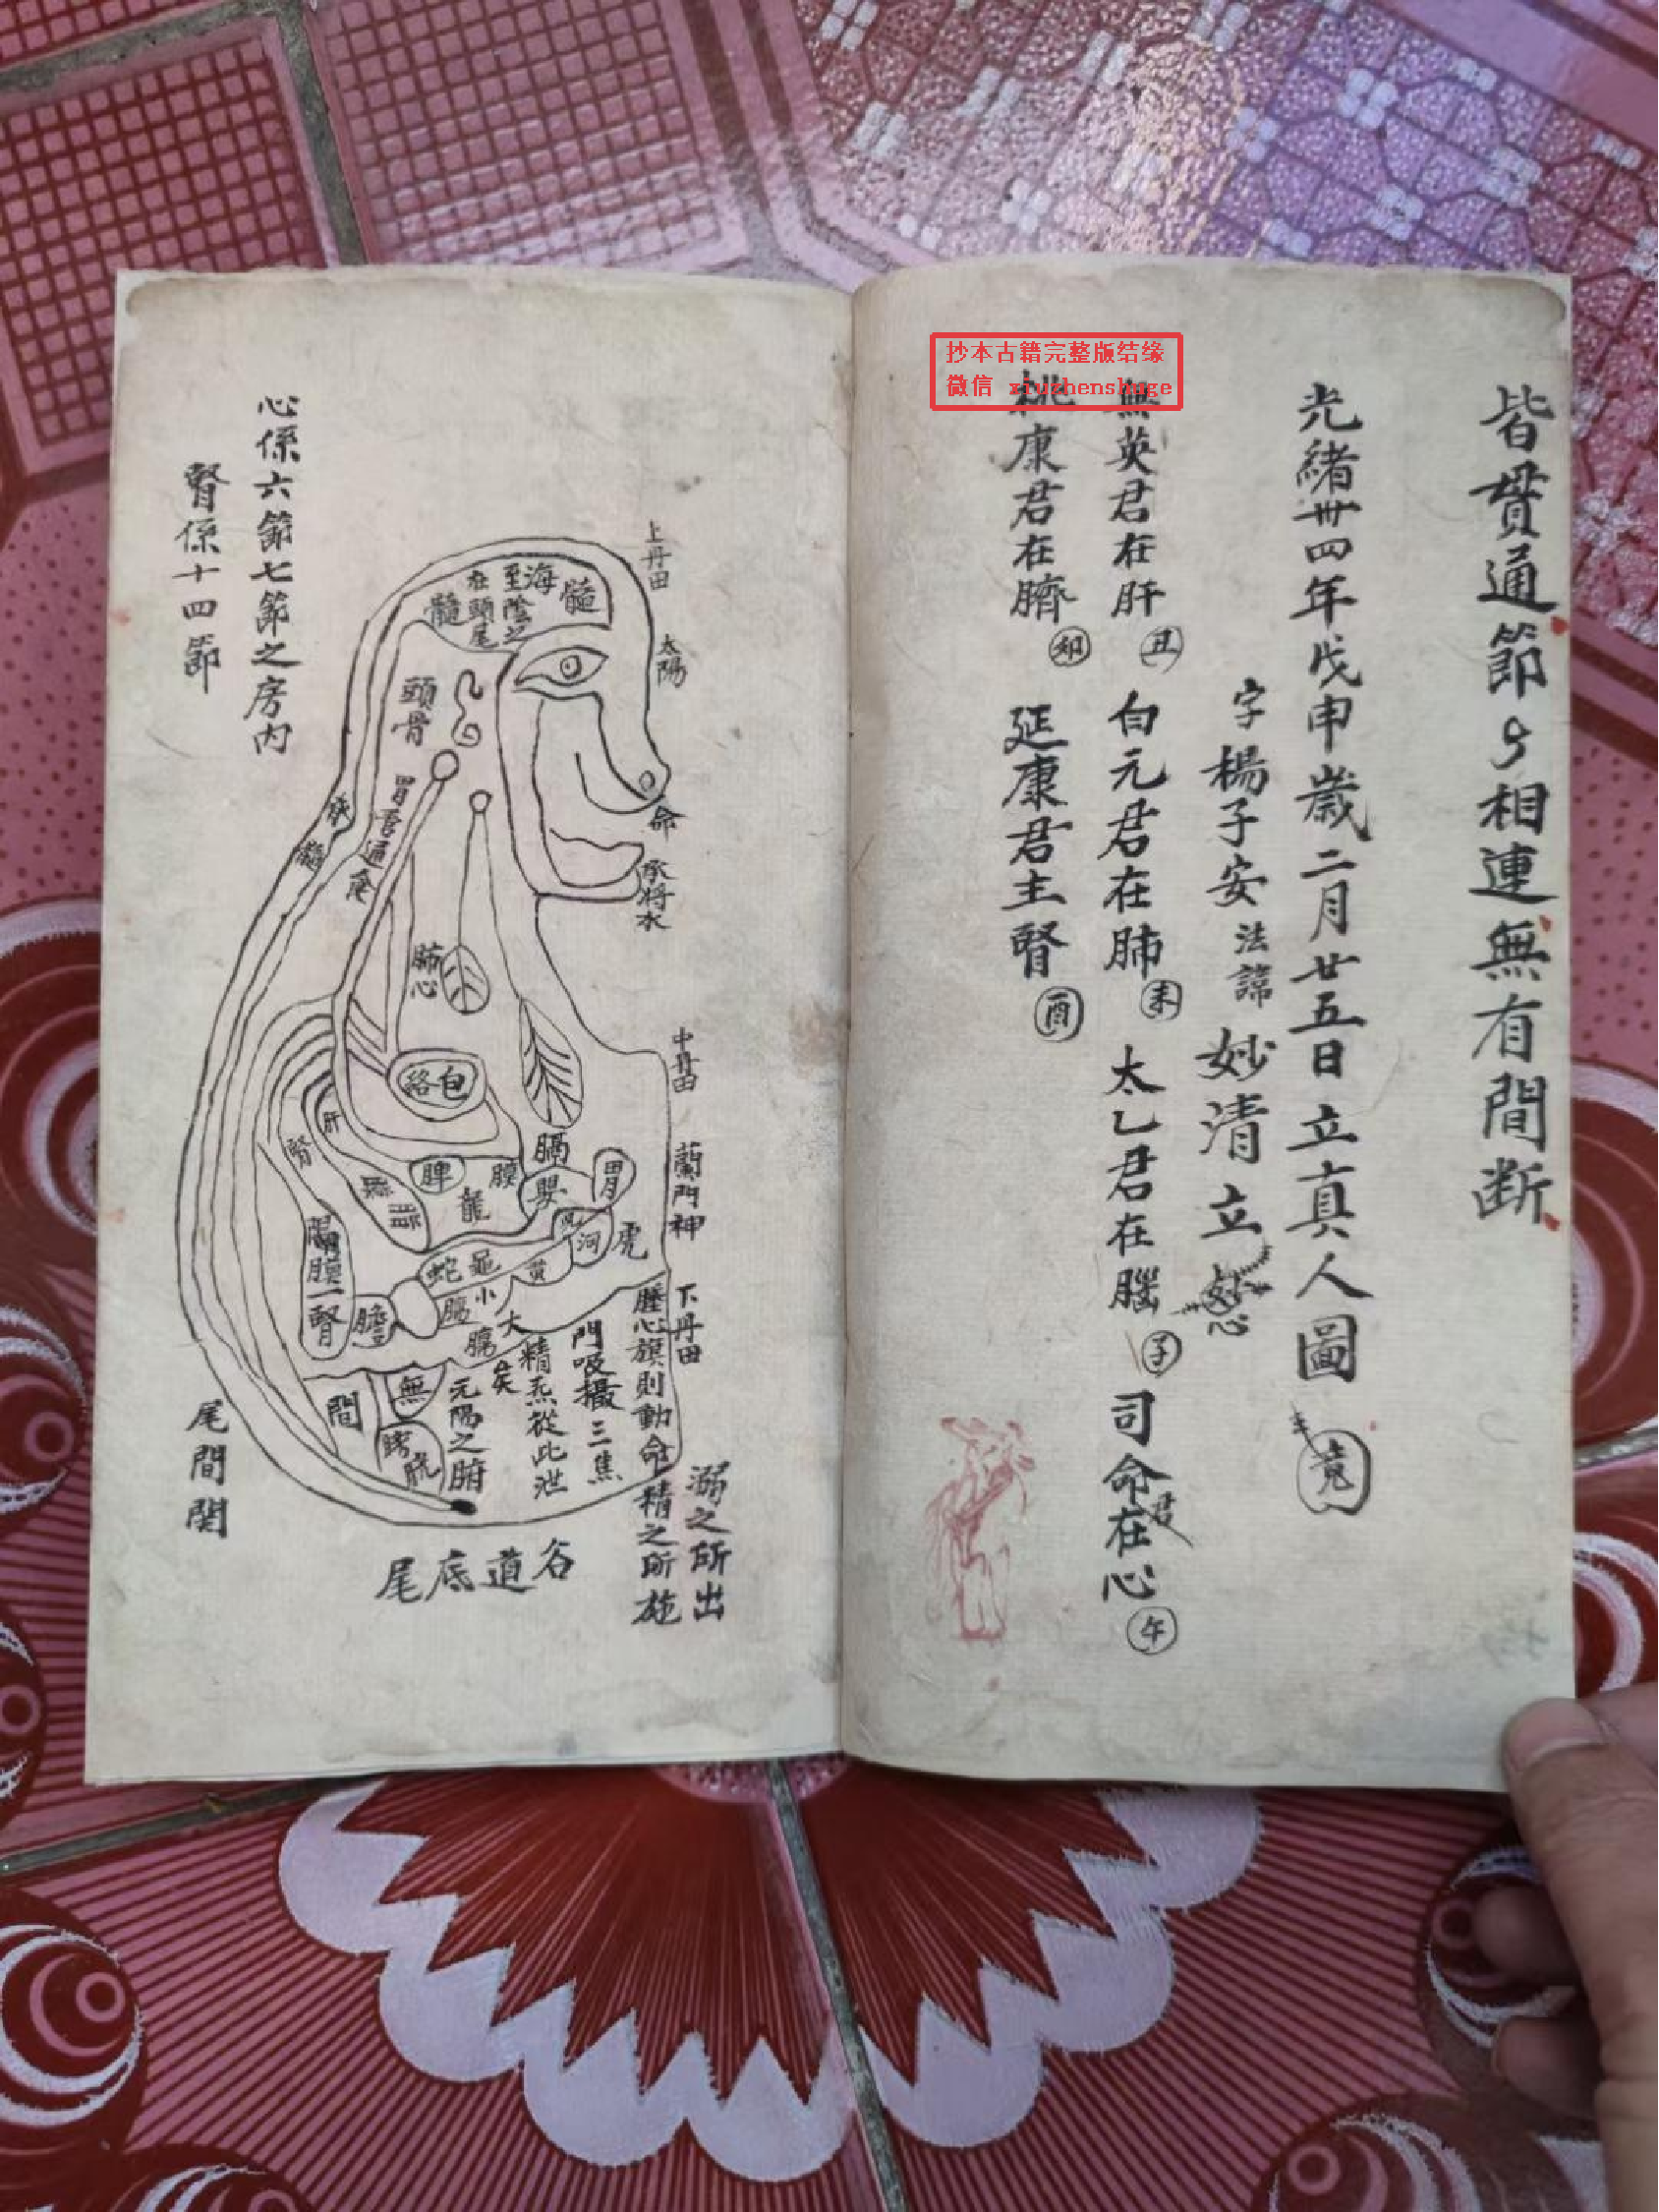 抄本古籍完整版结缘
微信 xiuzhenshuge
皆貫通節〻相連無有間断
光緒卅四年戊申歲二月廿五日立真人圖
字楊子安法諱妙清立
心
無英君在肝 丑 白元君在肺 未 太乙君在腦 子 司命君在心 午
桃康君在臍 卯 延康君主腎 酉
上丹田
太陽
命
承将水
中丹田
蘭門神
下丹田
溺之所出
膧心旗則動命精之所施
門吸攝三焦
精炁從此泄
矣
元陽之腑
髓海
至陰之
在頭尾
髓
頭骨
肺
心
包絡
膈
胃
脾
膜
龍
肝
腎
嬰
河
虎
黄
蛇龜
小腸
大腸
膽
腎
無
間
谷道底尾
尾閭関
心係六節七節之房内
腎係十四節